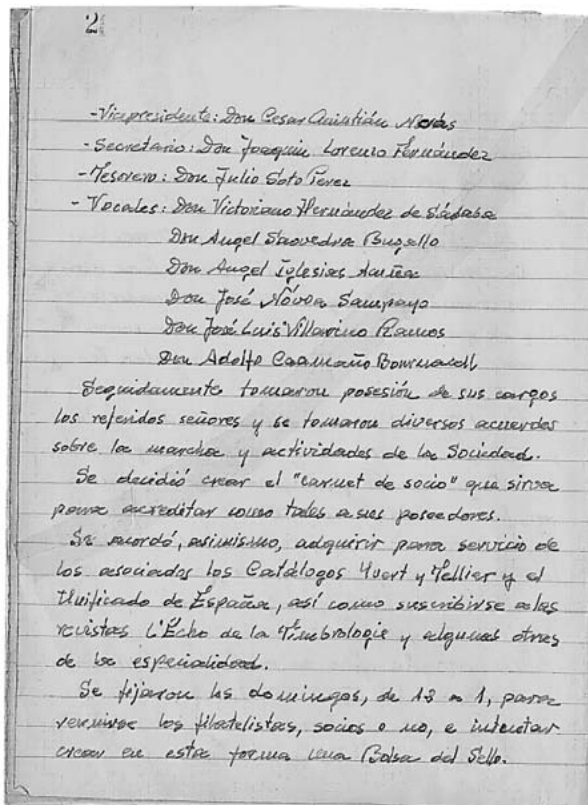 2
-Vicepresidente: Don Cesar Quintián Nocás
-Secretario: Don Joaquin Lorenzo Fernández
-Tesorero: Don Julio Soto Perez
- Vocales: Don Victoriano Hernández de Sádaba
Don Angel Saavedra Bugallo
Don Angel Iglesias
Don José Nóvoa Sampayo
Don José Luis Villarino Ramos
Don Adolfo Caamaño
Seguidamente tomaron posesión de sus cargos
los referidos señores y se tomaron diversos acuerdos
sobre la marcha y actividades de la Sociedad.
Se decidió crear el "carnet de socio" que sirva
para acreditar como tales a sus poseedores.
Se acordó, asimismo, adquirir para servicio de
los asociados los Catálogos Yvert y Tellier y el
Unificado de España, así como suscribirse a las
revistas L'Écho de la Timbrologie y algunas otras
de la especialidad.
Se fijaron los domingos, de 12 a 1, para
reunirse los filatelistas, socios o no, e intentar
crear en esta forma una Bolsa del Sello.